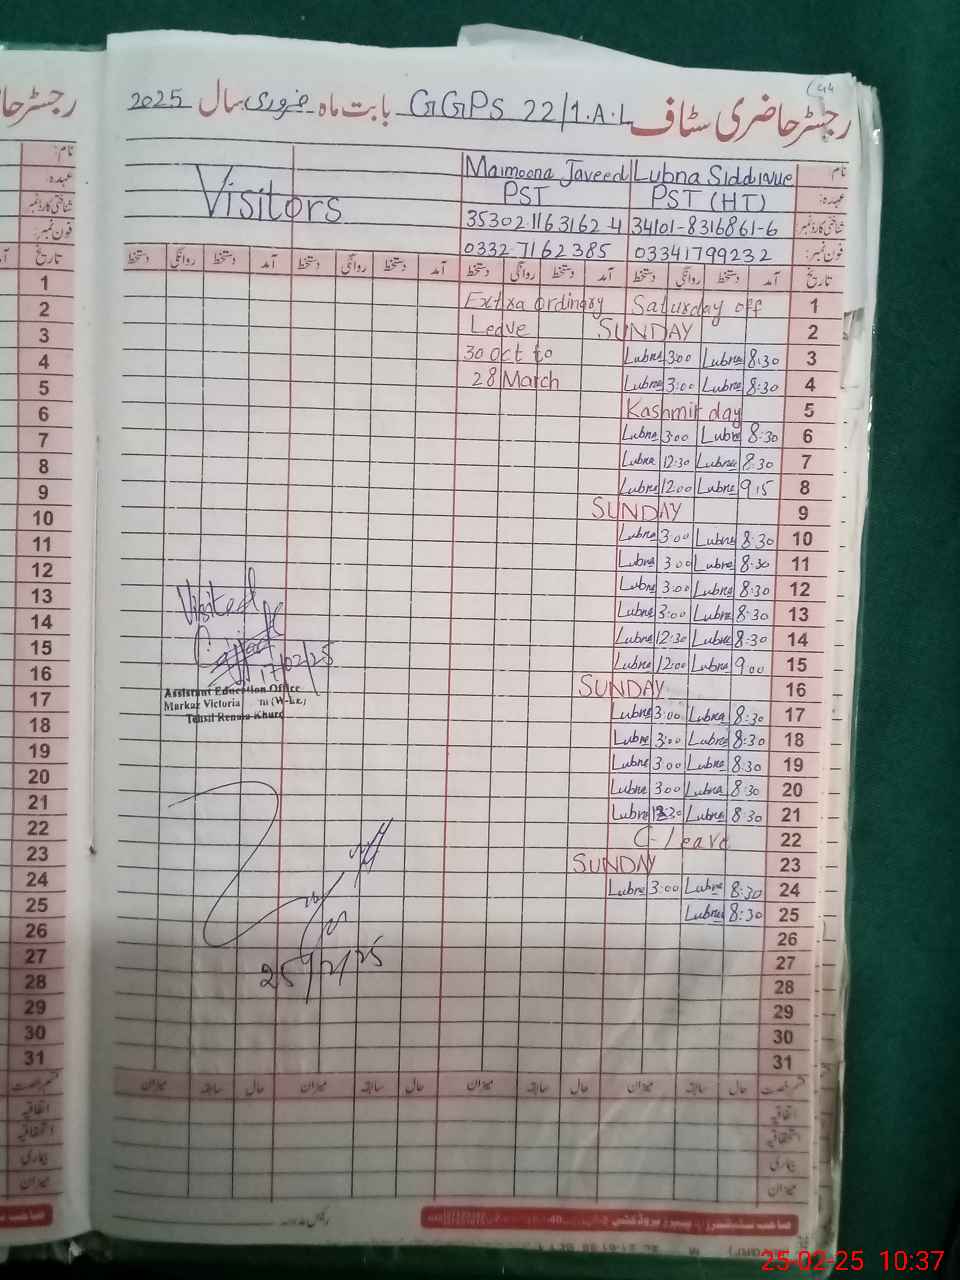 44
رجسٹر حاضری سٹاف GGPS 22/1.A.L بابت ماہ فروری سال 2025
نام: Lubna Siddique Maimoona Javeed
عہدہ: PST (HT) PST
Visitors
شناختی کارڈ نمبر 34101-8316861-6 35302.1163162-4
فون نمبر: 03341799232 0332-7162385
تاریخ آمد دستخط روانگی دستخط آمد دستخط روانگی دستخط آمد دستخط روانگی دستخط آمد دستخط روانگی دستخط
1 Saturday off Extra ordinary
2 SUNDAY Leave
3 8:30 Lubna 3:00 Lubna 30 Oct to
4 8:30 Lubna 3:00 Lubna 28 March
5 Kashmir day
6 8:30 Lubna 3:00 Lubna
7 8:30 Lubna 12:30 Lubna
8 9.15 Lubna 12:00 Lubna
9 SUNDAY
10 8:30 Lubna 3:00 Lubna
11 8:30 Lubna 3:00 Lubna
12 8:30 Lubna 3:00 Lubna
13 8:30 Lubna 3:00 Lubna
14 8:30 Lubna 12:30 Lubna
15 9:00 Lubna 12:00 Lubna
16 SUNDAY
17 8:30 Lubna 3:00 Lubna
18 8:30 Lubna 3:00 Lubna
19 8:30 Lubna 3:00 Lubna
20 8:30 Lubna 3:00 Lubna
21 8:30 Lubna 12:30 Lubna
22 C-leave
23 SUNDAY
24 8:30 Lubna 3:00 Lubna
25 8:30 Lubna
26
27
28
29
30
31
Visited
17/02/25
Assistant Education Office
Markaz Victoria (W-EE)
Tehsil Renala Khurd
25/2/25
قسم رخصت حال سابقہ میزان حال سابقہ میزان حال سابقہ میزان حال سابقہ میزان
اتفاقیہ
استحقاقیہ
بیماری
میزان
رئیس مدرسہ
رجسٹر حا
نام:
عہدہ:
شناختی کارڈ نمبر
فون نمبر:
تاریخ
1
2
3
4
5
6
7
8
9
10
11
12
13
14
15
16
17
18
19
20
21
22
23
24
25
26
27
28
29
30
31
قسم رخصت
اتفاقیہ
استحقاقیہ
بیماری
میزان
25-02-25 10:37